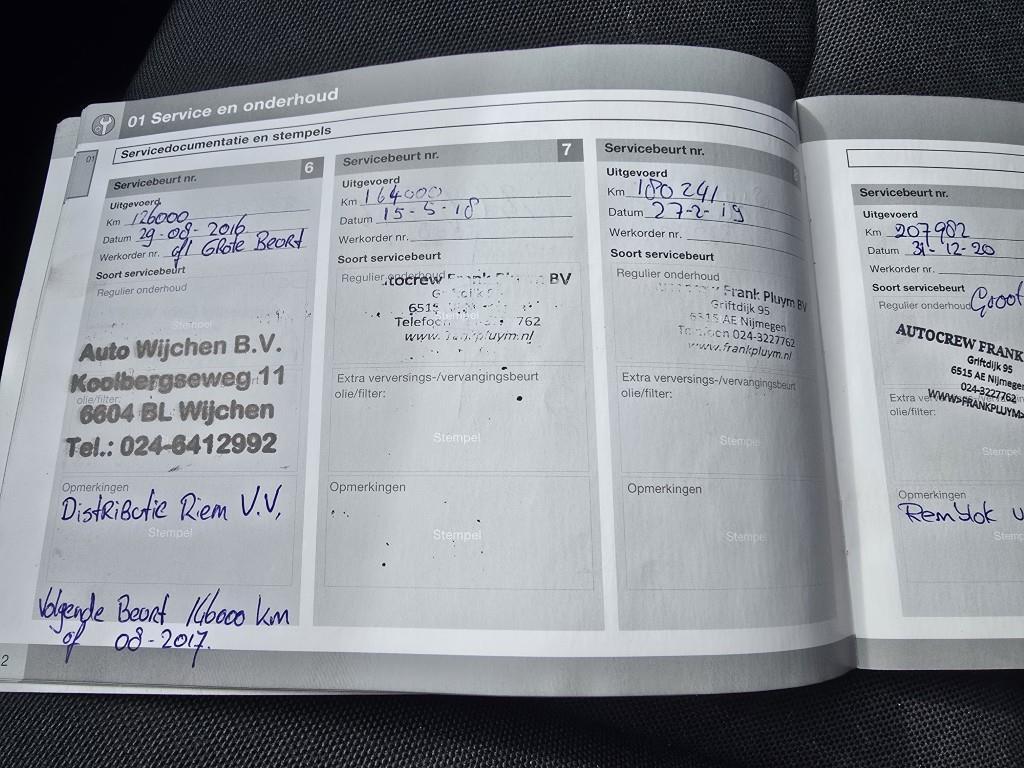 01 Service en onderhoud
01
Servicedocumentatie en stempels
Servicebeurt nr. 6
Uitgevoerd
Km 126000
Datum 29-08-2016
Werkorder nr. Grote Beort
Soort servicebeurt
Regulier onderhoud
Stempel
Auto Wijchen B.V.
Koolbergseweg 11
olie/filter:
6604 BL Wijchen
Tel.: 024-6412992
Opmerkingen
Distributie Riem V.V,
Stempel
Volgende Beort 146000 km
of 08-2017.
2
Servicebeurt nr. 7
Uitgevoerd
Km 164000
Datum 15-5-18
Werkorder nr.
Soort servicebeurt
Regulier onderhoud
Frank BV
6515
Telefoon 762
Extra verversings-/vervangingsbeurt
olie/filter:
Stempel
Opmerkingen
Stempel
Servicebeurt nr.
Uitgevoerd
Km 180241
Datum 27-2-19
Werkorder nr.
Soort servicebeurt
Regulier onderhoud
Frank Pluym BV
Griftdijk 95
6515 AE Nijmegen
024-3227762
www.frankpluym.nl
Extra verversings-/vervangingsbeurt
olie/filter:
Stempel
Opmerkingen
Stempel
Servicebeurt nr.
Uitgevoerd
Km 207982
Datum 31-12-20
Werkorder nr.
Soort servicebeurt
Regulier onderhoud Groot
AUTOCREW FRANK
Griftdijk 95
6515 AE Nijmegen
024-3227762
WWW>FRANKPLUYM>
olie/filter:
Stempel
Opmerkingen